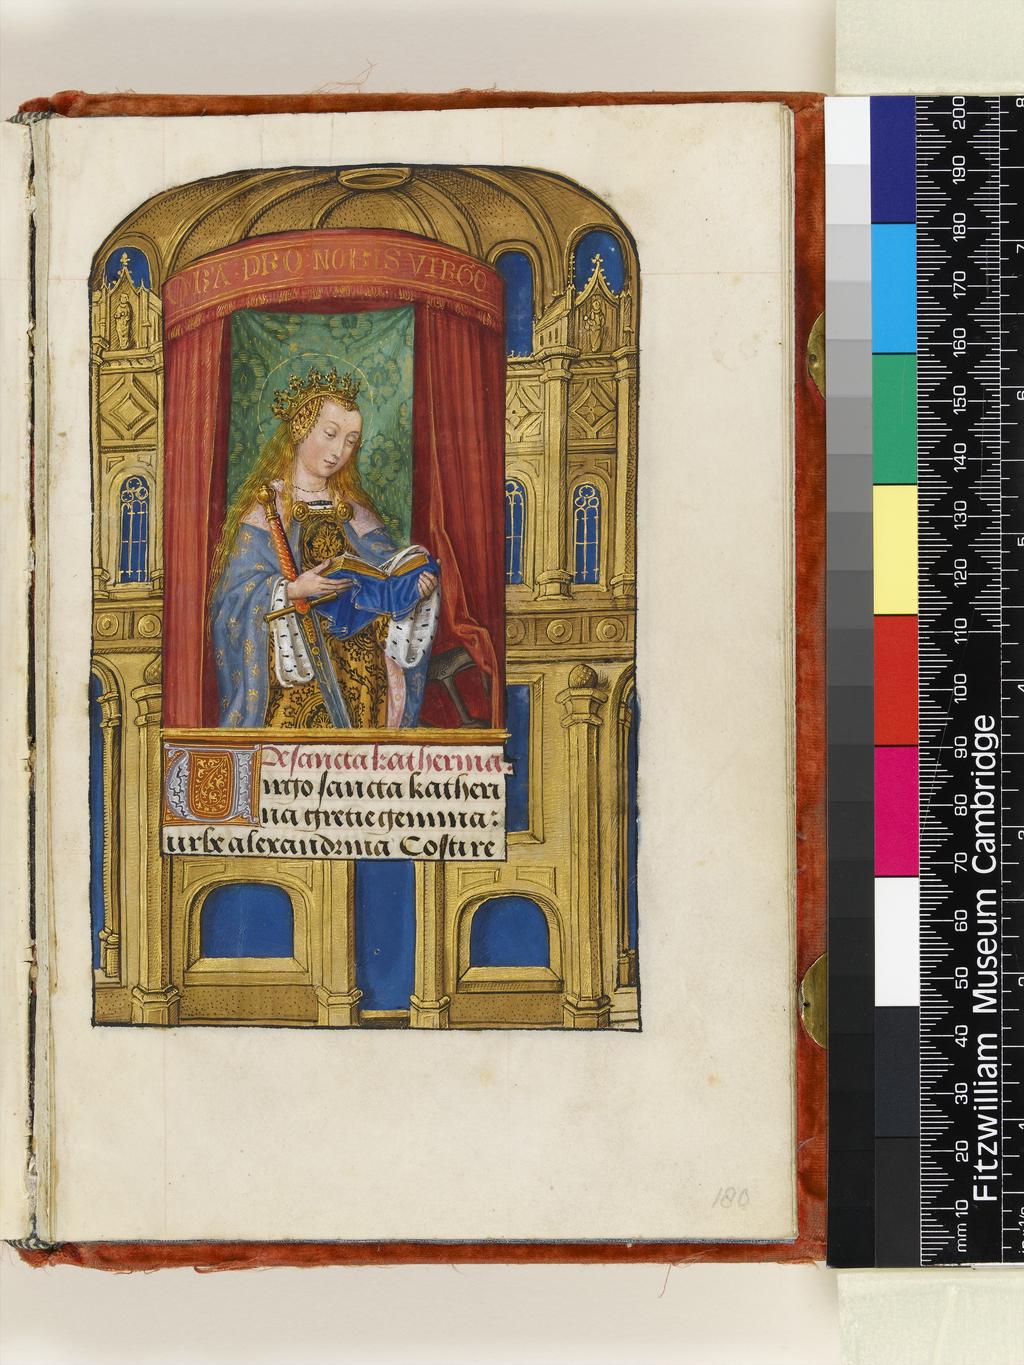 ORA·PRO·NOBIS·VIRGO
De sancta katherina.
Virgo sancta katheri
na grecie gemma:
urbe alexandrina Costi re
180
Fitzwilliam Museum Cambridge
mm 10 20 30 40 50 60 70 80 90 100 110 120 130 140 150 160 170 180 190 200